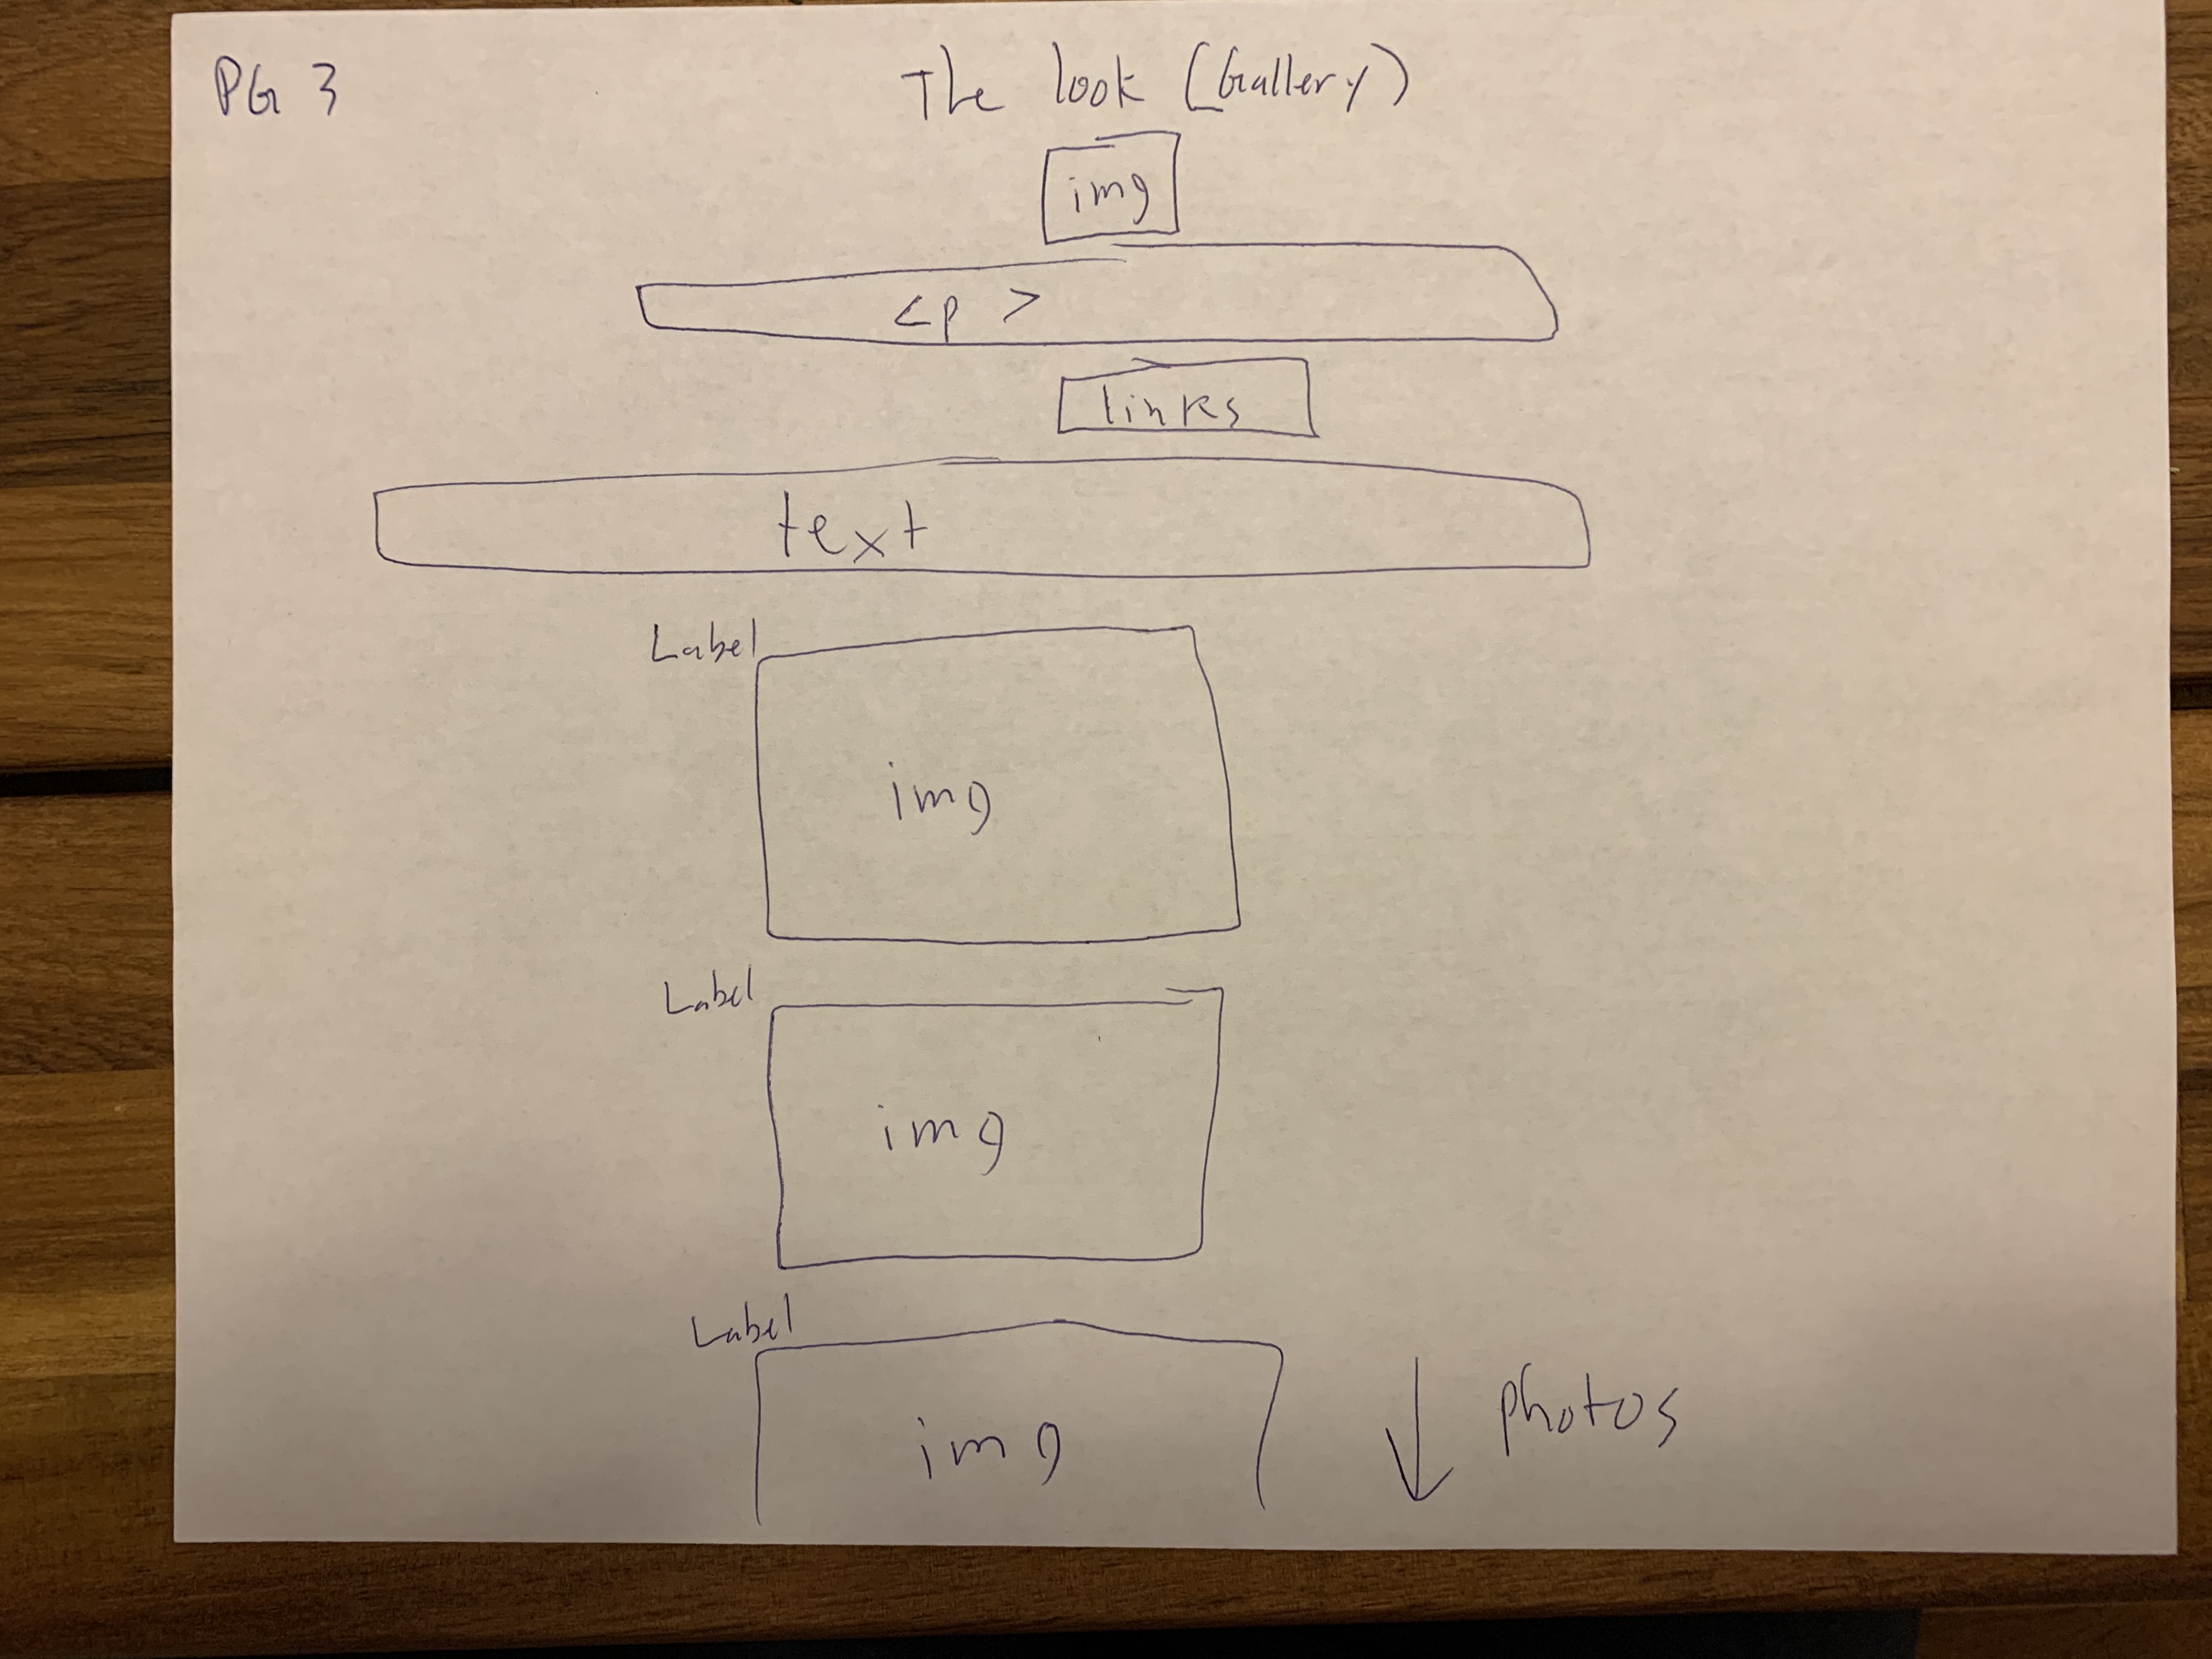 PG 3
The look (Gallery)
img
<p>
links
text
Label
img
Label
img
Label
img
photos